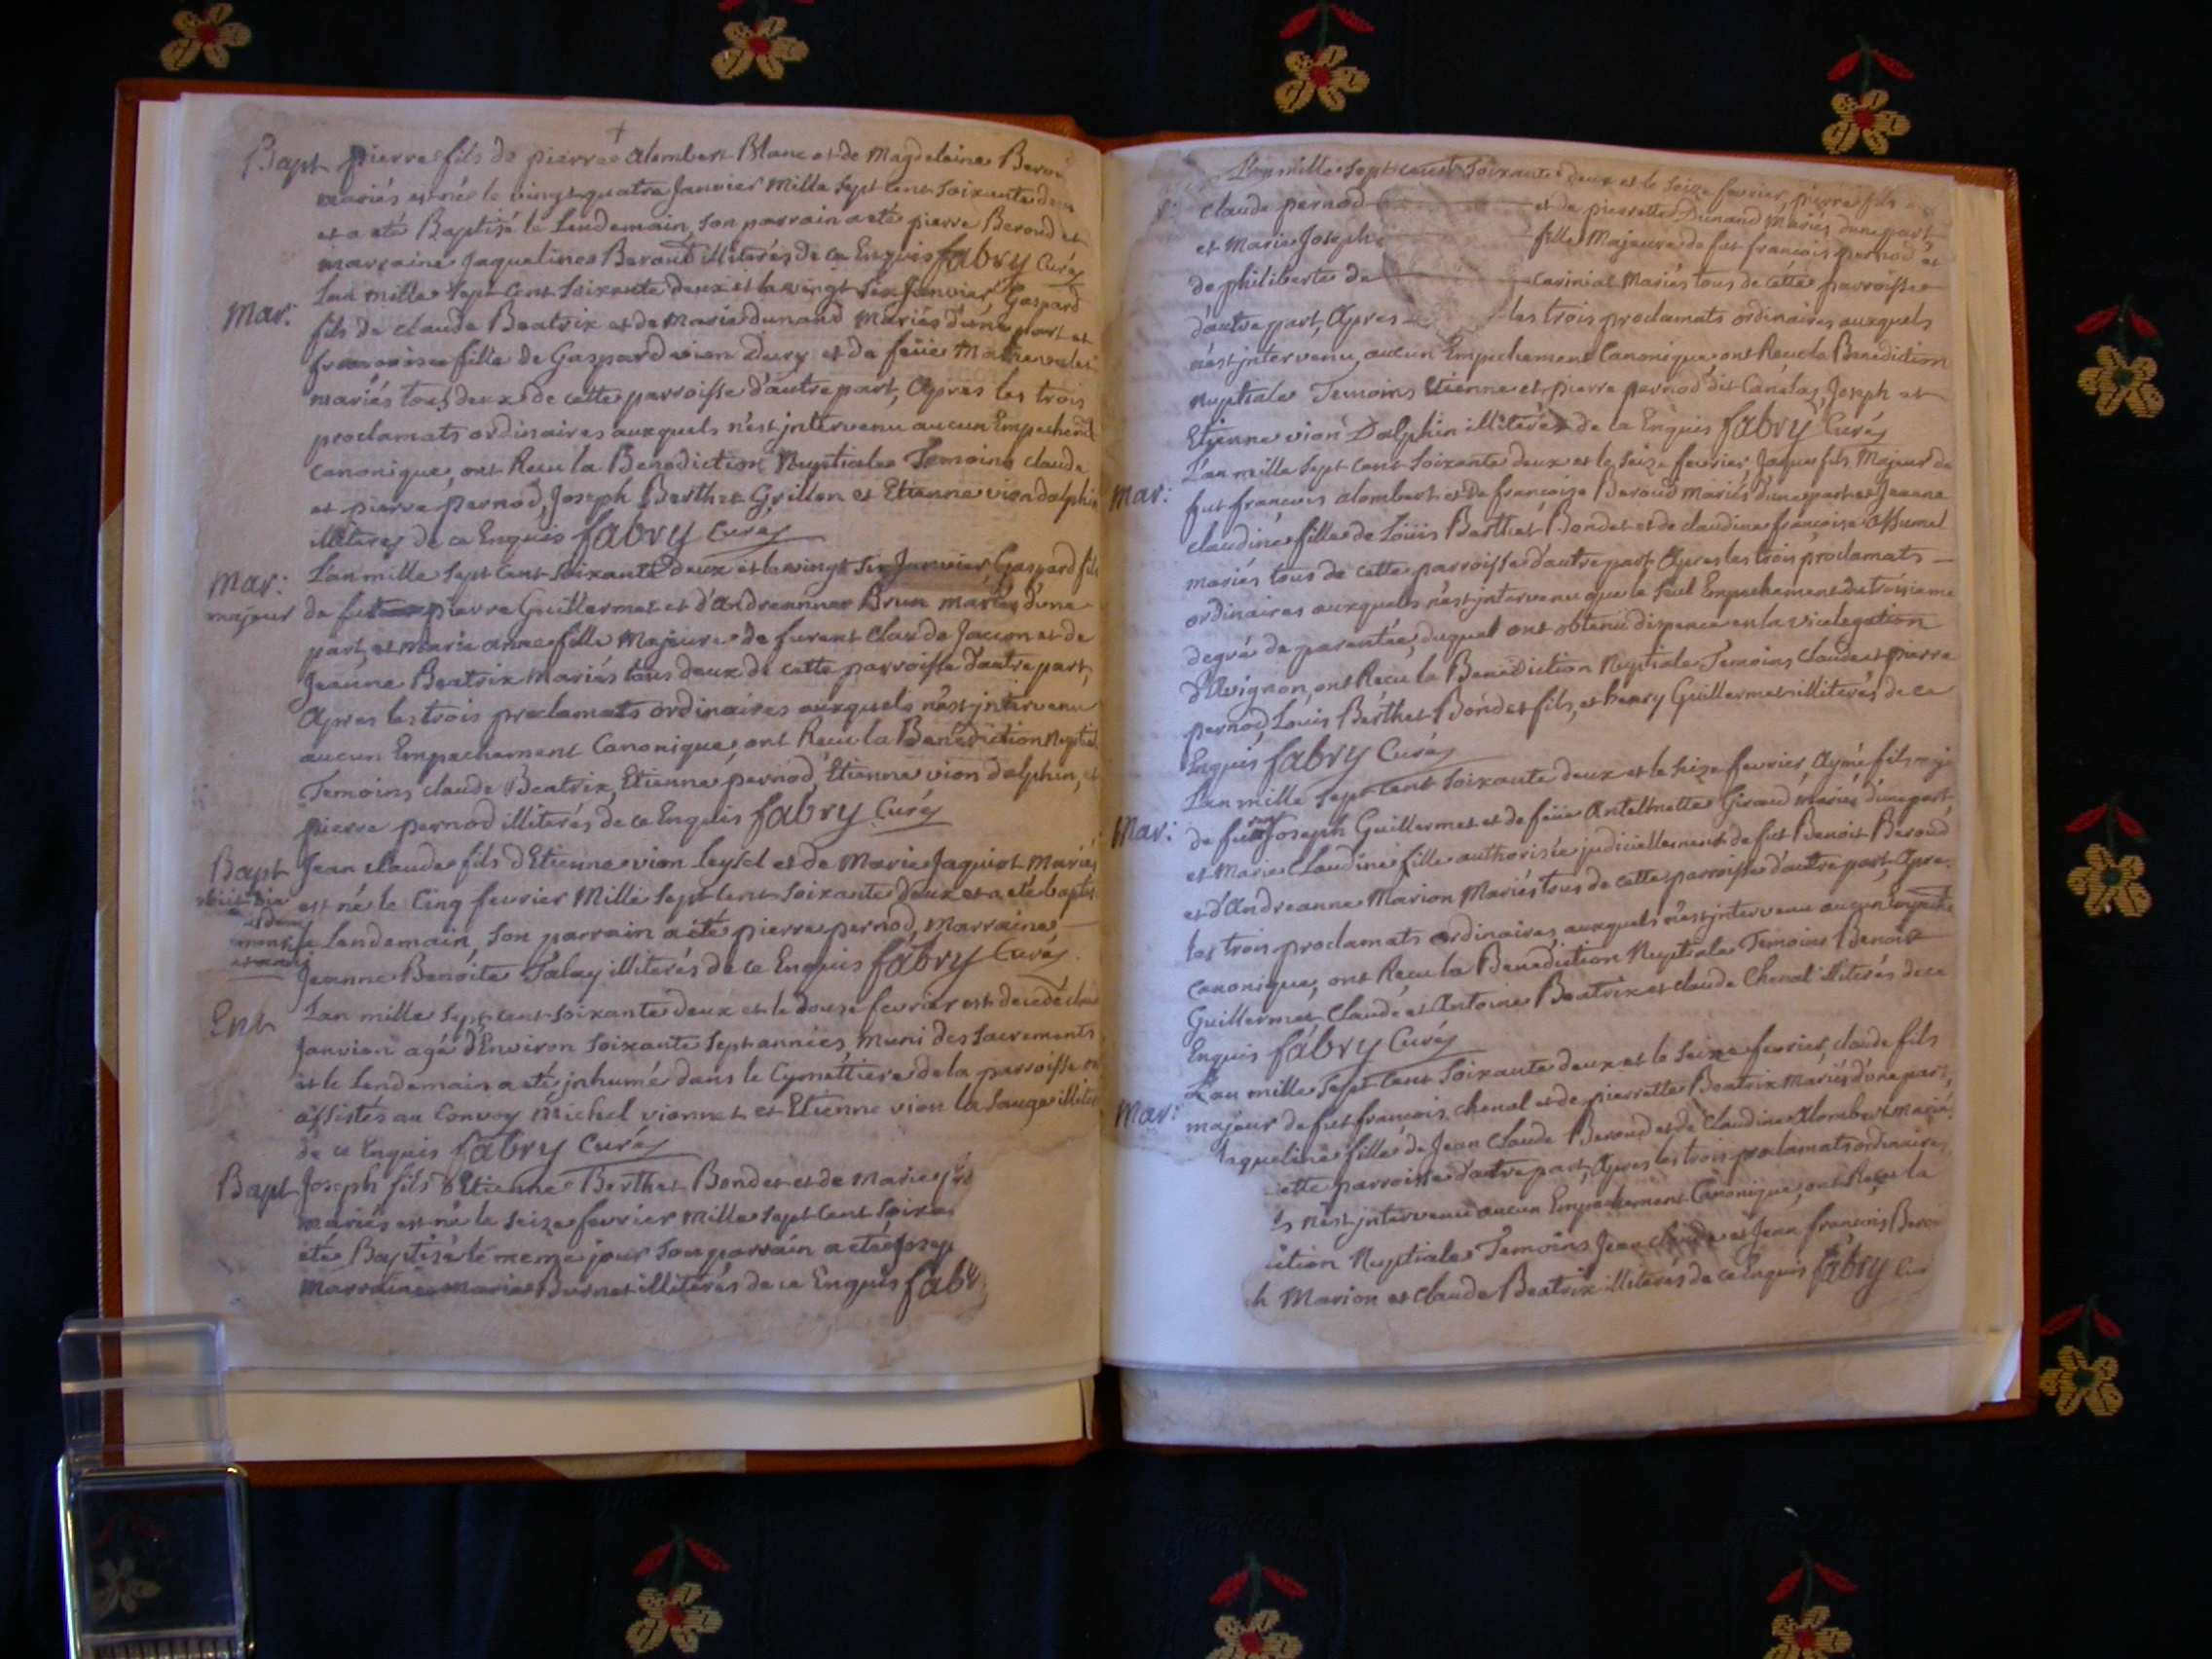 Bapt pierre fils de pierre alombert Blanc et de Magdelaine
mariés est né le vingt quatre Janvier Mille Sept Cent Soixante
et a eté Baptisé le Lendemain, Son parrain a eté pierre Beroud et
marraine Jaqueline Beroud illiterés de ce Enquis fabry Curé
Mar: Lan mille Sept Cent Soixante deux et le vingt Six Janvier, Gaspard
fils de claude Beatrix et de Marie dunand Mariés d'une part et
francoise fille de Gaspard vion Dury et de feüe
mariés tous deux de cette parroisse d'autre part, Apres les trois
proclamats ordinaires auxquels n'est jntervenu aucun Empechemt
canonique, ont Recu la Benediction Nuptiale Temoins claude
et pierre pernod, Joseph Berthet Grillon et Etienne vion dalphin
illiteres de ce Enquis fabry Curé
Mar: L'an mille Sept Cent Soixante Deux et le vingt Six Janvier Gaspard fils
majeur de fut pierre Guillermet et d'Andreanne Brun mariés d'une
part, et Marie anne fille Majeure de furent Claude Jaccon et de
Jeanne Beatrix Mariés tous deux de cette parroisse d'autre part,
Apres les trois proclamats ordinaires auxquels n'est jntervenu
aucun Empechement Canonique, ont Recu la Benediction
Temoins claude Beatrix, Etienne pernod, Etienne vion dalphin, et
pierre pernod illiterés de ce Enquis fabry Curé
Bapt Jean claude fils d'Etienne vion et de Marie Jaquiot Mariés
est né le Cinq fevrier Mille Sept Cent Soixante Deux et a eté
Lendemain, Son parrain a eté pierre pernod, Marraine
Jeanne Benoite illiterés de ce Enquis fabry Curé
Lan mille Sept Cent Soixante deux et le douze fevrier est decedé
Janvion agé d'Environ Soixante Sept années, muni des Sacrements
et le Lendemain a eté jnhumé dans le Cymettiere de la parroisse
assistés au Convoy Michel vionnet et Etienne vion la Sauge
de ce Enquis fabry Curé
Bapt Joseph fils d'Etienne Berthet Bondet et de Marie
mariés est né le Seize fevrier Mille Sept Cent
eté Baptisé le meme jour Son parrain a eté
Marraine Marie Burnet illiterés de ce Enquis
L'an mille Sept Cent Soixante deux et le Seize fevrier, pierre fils
claude pernod et de pierrette Dunand Mariés d'une part
et Marie Joseph fille Majeure de fut francois pernod et
de philiberte de Mariés tous de cette parroisse
d'autre part, Apres les trois proclamats ordinaires auxquels
n'est jntervenu aucun Empechement Canonique, ont Recu la Benediction
Nuptiale Temoins Etienne et pierre pernod dit Joseph et
Etienne vion Dalphin illiterés de ce Enquis fabry Curé
Mar: L'an mille Sept Cent Soixante deux et le Seize fevrier, Jaque fils Majeur de
fut francois alombert et de francoise Beroud mariés d'une part et Jeanne
claudine fille de Loüis Berthet Bondet et de claudine francoise
mariés tous de cette parroisse d'autre part Apres les trois proclamats
ordinaires auxquels n'est jntervenu que le Seul Empechement du troisieme
degré de parentée, duquel ont obtenu dispence en la vicelegation
d'Avignon, ont Recu la Benediction Nuptiale Temoins Claude et pierre
pernod, Louis Berthet Bondet fils, et henry Guillermet illiterés de ce
Enquis fabry Curé
Mar: L'an mille Sept Cent Soixante deux et le Seize fevrier, Aymé fils
de Joseph Guillermet et de feüe Giroud mariés d'une part
et Marie Claudine fille authorisée judiciellement de fut Benoit Beroud
et d'Andreanne Marion Mariés tous de cette parroisse d'autre part, Apre
les trois proclamats ordinaires, auxquels n'est jntervenu aucun
canonique, ont Recu la Benediction Nuptiale Temoins Benoit
Guillermet, Claude et Antoine Beatrix et claude Chenal illiterés de ce
Enquis fabry Curé
Mar: L'an mille Sept Cent Soixante deux et le Seize fevrier, claude fils
majeur de fut francois chenal et de pierrette Beatrix Mariés d'une part,
Jaqueline fille de Jean Claude Beroud et de Claudine Alombert mariés
cette parroisse d'autre part, Apres les trois proclamats ordinaires,
n'est jntervenu aucun Empechement Canonique, ont Reçu la
iction Nuptiale Temoins Jean claude et Jean francois
h Marion et Claude Beatrix illiterés de ce Enquis fabry